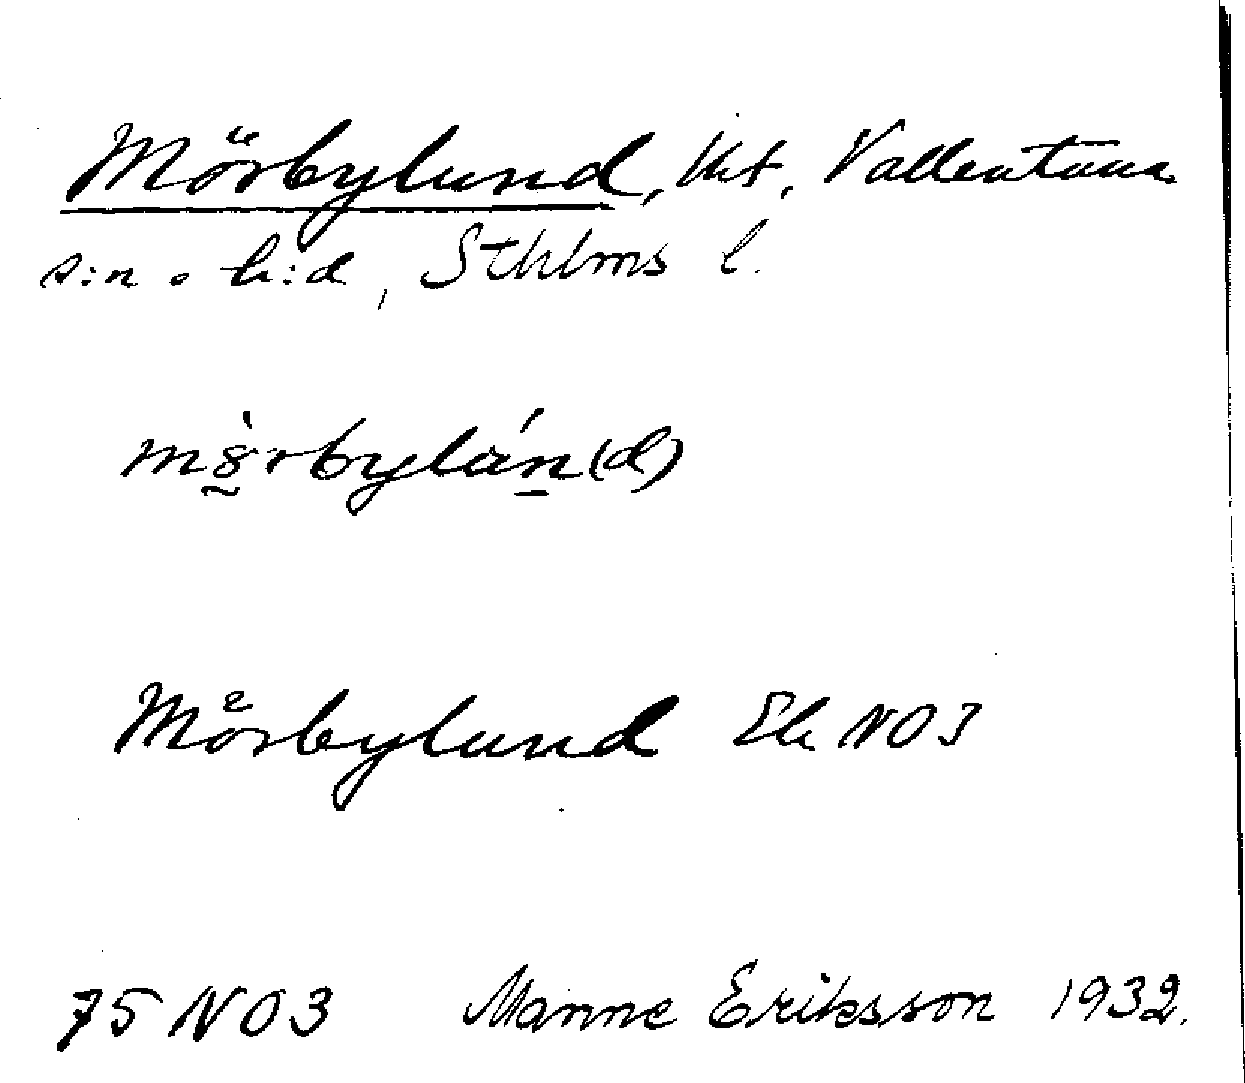 Mörbylund, lht, Vallentuna
s:n o h:d, Sthlms l.
mörbylán(d)
Mörbylund Ek NO3
75 NO3 Manne Eriksson 1932.